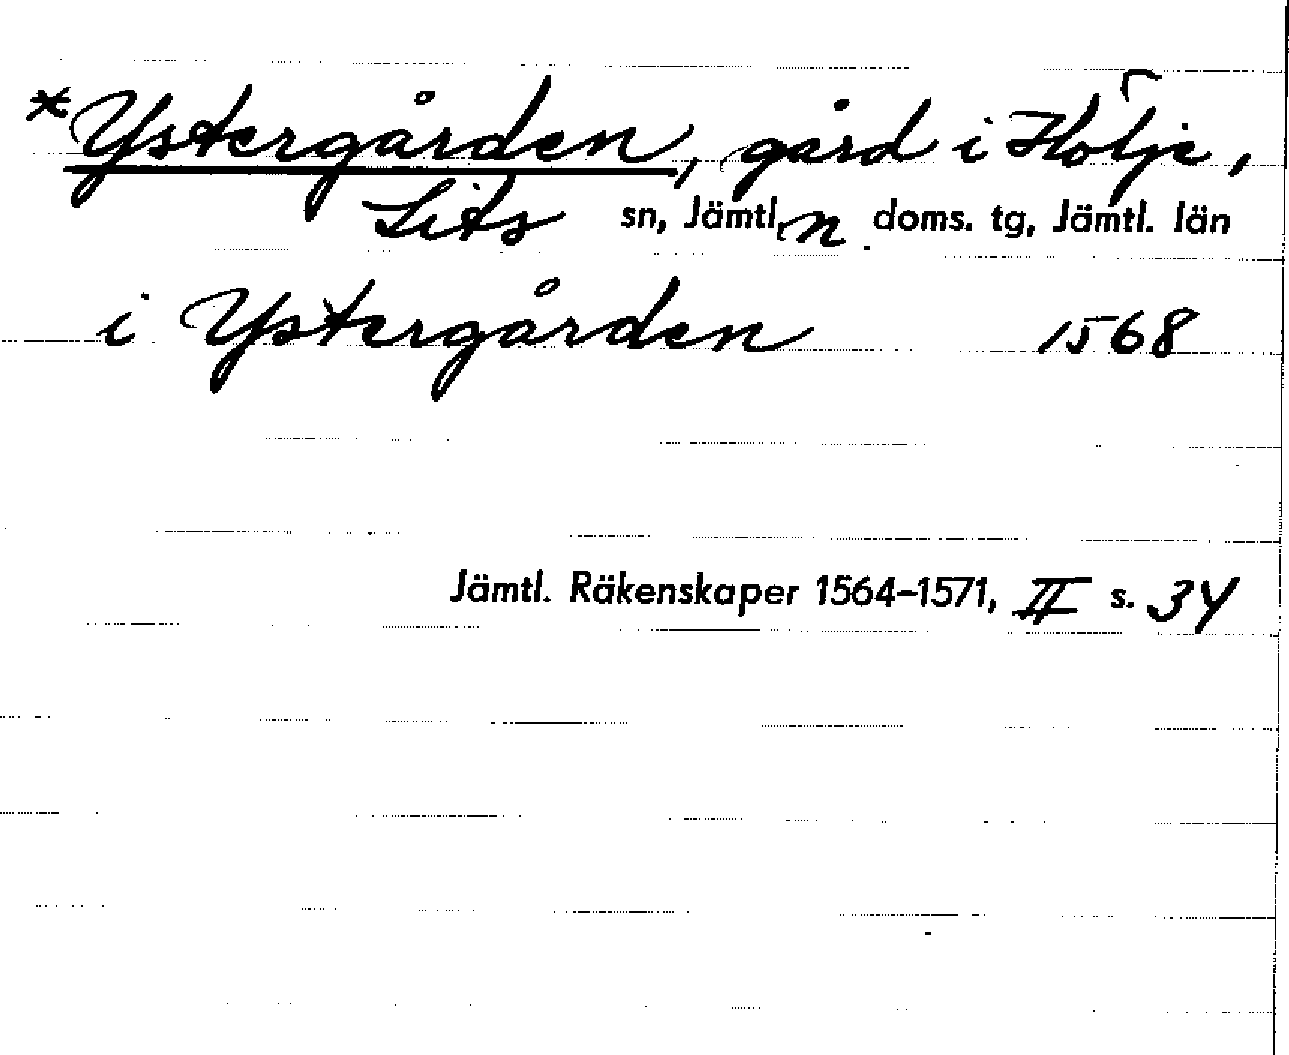 *Ystergården, gård i Hölje,
Lits sn, Jämtl, n doms. tg, Jämtl. län
i Ystergården 1568
Jämtl. Räkenskaper 1564-1571, II s. 34